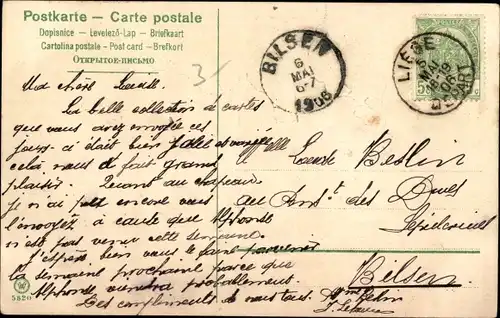 Postkarte – Carte postale
Dopisnice – Levelező-Lap – Briefkaart
Cartolina postale – Post card – Brefkort
Открытое-письмо
BILSEN
6
MAI
6-7
1906
LIEGE
DEPART
3
Ma chère Lucile.
La belle collection de cartes
que vous avez envoyée ces
jours-ci était bien jolie et
cela nous a fait grand
plaisir. Quant au chapeau
je n'ai pas encore vous
l'envoyer à cause que Alphonse
n'est pas venu cette semaine.
J'espère bien vous le faire parvenir
la semaine prochaine parce que
Alphonse viendra probablement.
Les compliments de nous tous.
Berlin
au des Dames
Bilsen.
5820